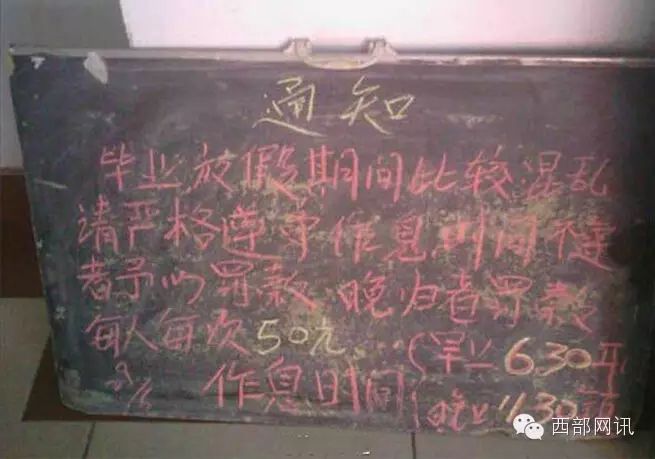 通知
毕业放假期间比较混乱
请严格遵守作息时间不违
者予以罚款 晚归者罚款
每人每次50元 (早上 6:30开
作息时间 (晚上 11:30
西部网讯